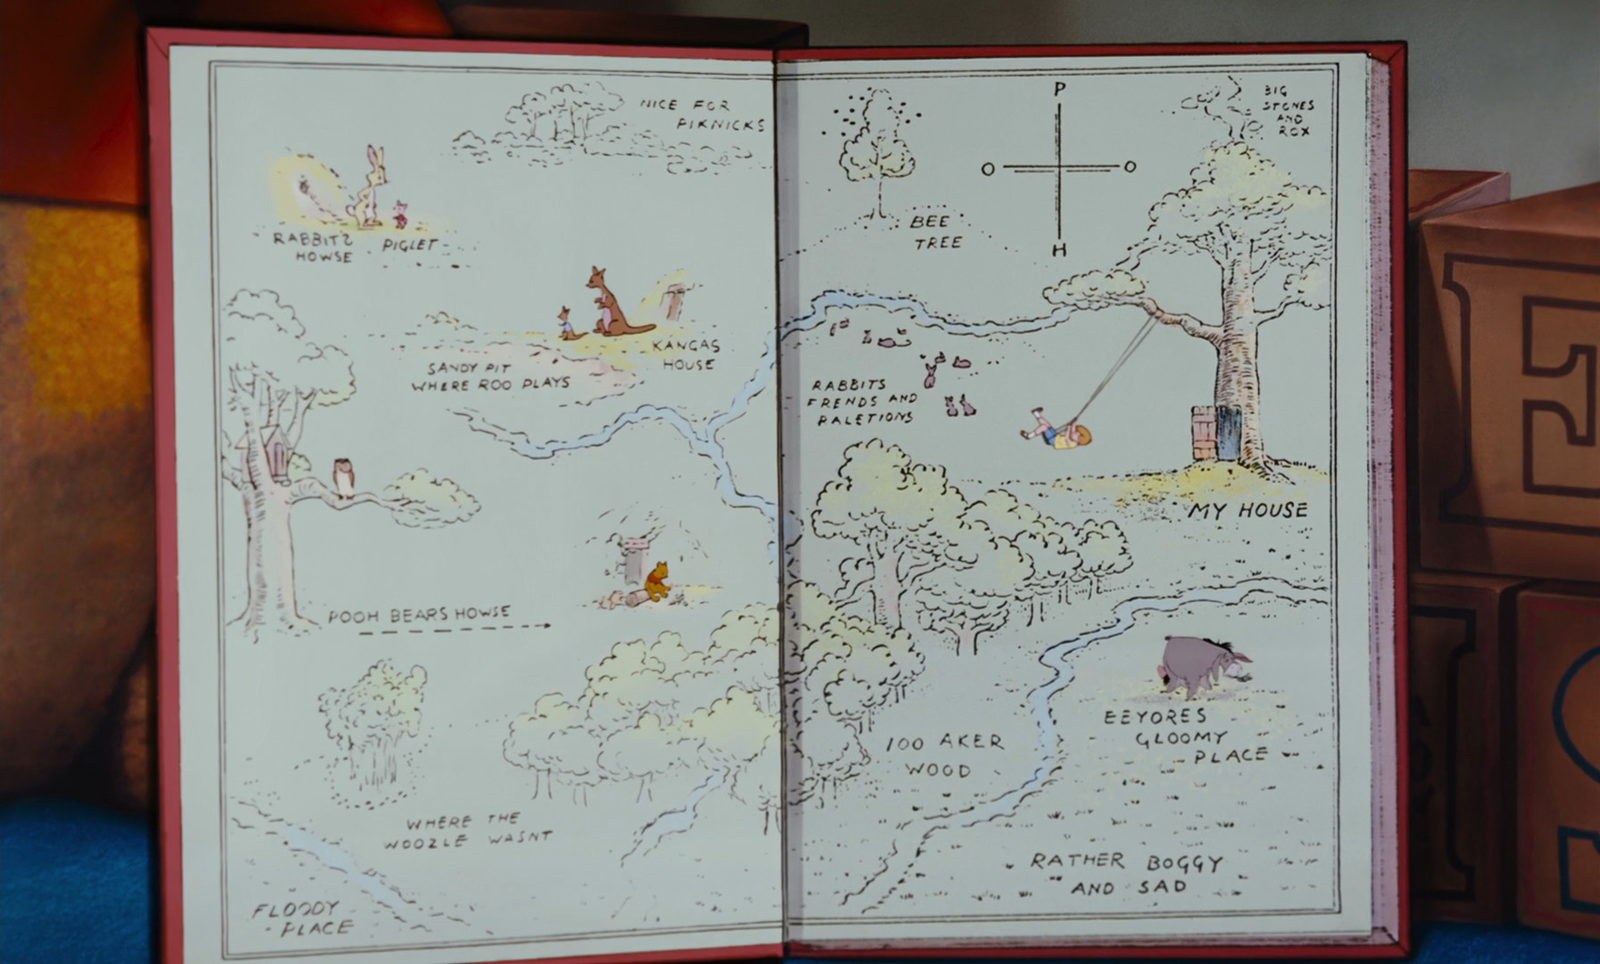 NICE FOR
PIKNICKS
RABBITS
HOWSE
PIGLET
SANDY PIT
WHERE ROO PLAYS
KANGAS
HOUSE
POOH BEARS HOWSE
WHERE THE
WOOZLE WASNT
FLOODY
PLACE
BEE
TREE
P
O
O
H
BIG
STONES
AND
ROX
RABBITS
FRENDS AND
RALETIONS
MY HOUSE
100 AKER
WOOD
EEYORES
GLOOMY
PLACE
RATHER BOGGY
AND SAD
E